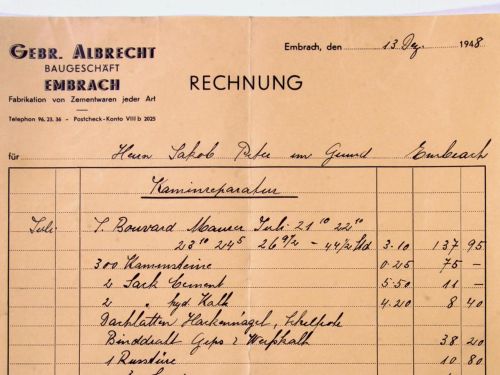 GEBR. ALBRECHT
BAUGESCHÄFT
EMBRACH
Fabrikation von Zementwaren jeder Art
Telephon 96.23.36 - Postcheck-Konto VIII b 2025
Embrach, den 13. Dez. 1948
RECHNUNG
für Herrn Jakob Peter im Grund Embrach
Kaminreparatur
Juli T. Bouvard Maurer Juli 21 10 22 10
23 10 24 5 26 9/2 - 44/2 Std 3.10 137 95
300 Kaminsteine 0.25 75 -
2 Sack Cement 5.50 11 -
2 " hyd. Kalk 4.20 8 40
Dachlatten Hackennägel,
Binddraht Gips & Weisskalk 38 20
1 Russtüre 10 80